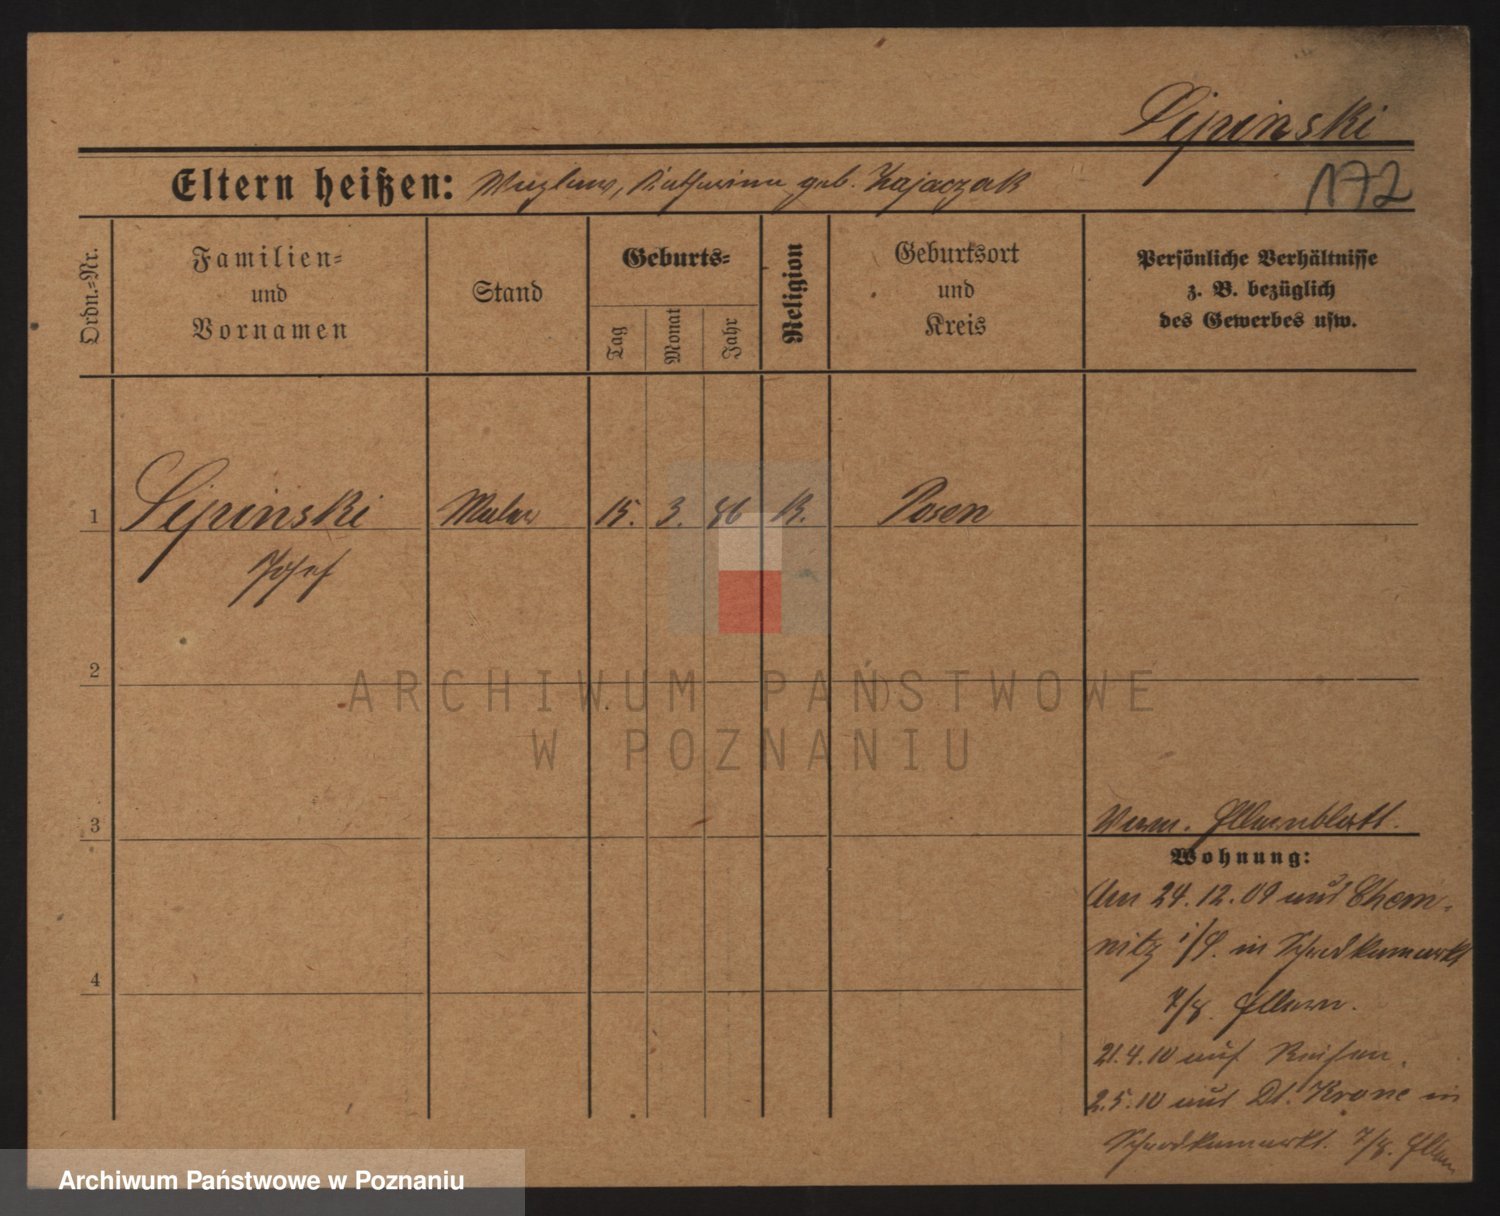 Lipinski
172
Eltern heißen: Wazlaw, Katharina geb. Kajaczak
Ordn.-Nr.
Familien-
und
Vornamen
Stand
Geburts-
Tag
Monat
Jahr
Religion
Geburtsort
und
Kreis
Persönliche Verhältnisse
z. B. bezüglich
des Gewerbes usw.
1 Lipinski Maler 15. 3. 86 K. Posen
Josef
2
3
4
Verm. Elternblatt.
Wohnung:
Am 24.12.09 aus Chem-
nitz i/S. in
7/8. Eltern.
21.4.10 auf Reisen.
2.5.10 aus Dt. Krone in
7/8. Eltern
ARCHIWUM PAŃSTWOWE
W POZNANIU
Archiwum Państwowe w Poznaniu